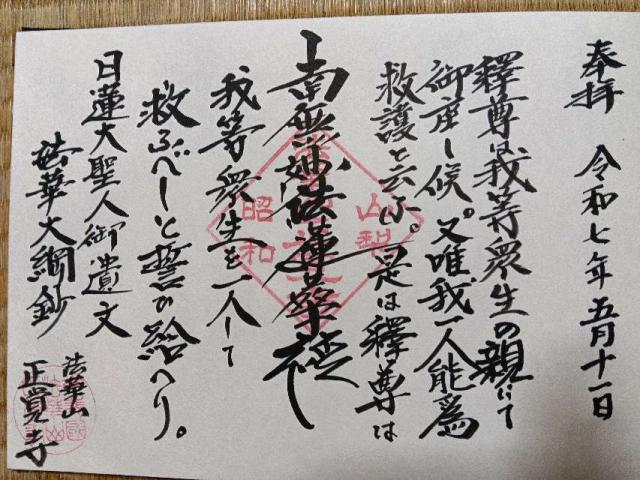 奉拝 令和七年五月十一日
釋尊は我等衆生の親にて
御座し候。又唯我一人能爲
救護と云ふ。是は釋尊は
南無妙法蓮華経
我等衆生を一人して
救ふべしと誓ひ給へり。
日蓮大聖人御遺文
法華大綱鈔
法華山
正覚寺
山梨
昭和